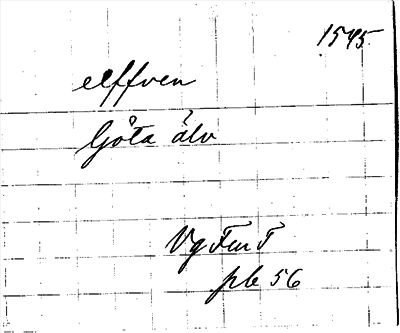 1545
elffven
Göta älv
Vg Fm F
plb 56